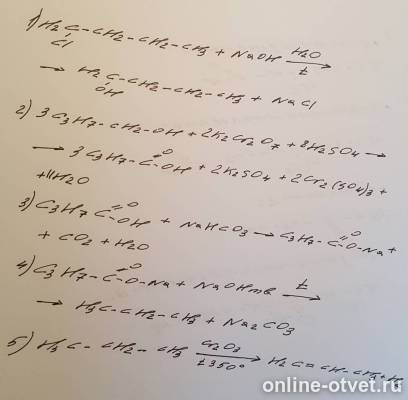 1) H2C-CH2-CH2-CH3 + NaOH H2O
Cl t
→ H2C-CH2-CH2-CH3 + NaCl
OH
2) 3C3H7-CH2-OH + 2K2Cr2O7 + 8H2SO4 →
→ 3C3H7-C=O-OH + 2K2SO4 + 2Cr2(SO4)3 +
+ 11H2O
3) C3H7C=O-OH + NaHCO3 → C3H7-C=O-O-Na +
+ CO2 + H2O
4) C3H7-C=O-O-Na + NaOHтв t →
→ H3C-CH2-CH3 + Na2CO3
5) H3C-CH2-CH3 Cr2O3 t350° → H2C=CH-CH3+H2
online-otvet.ru